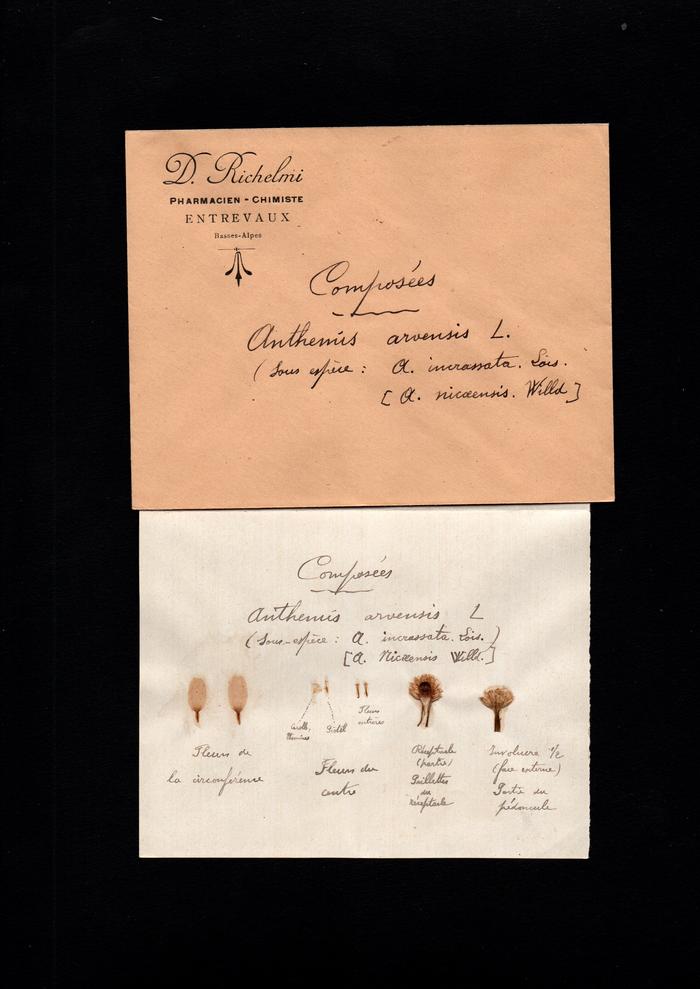 D. Richelmi
PHARMACIEN - CHIMISTE
ENTREVAUX
Basses-Alpes
Composées
Anthemis arvensis L.
(Sous espèce : A. incrassata. Lois.
[A. nicæensis. Willd]
Composées
Anthemis arvensis L
(Sous-espèce : A. incrassata. Lois.)
[A. Nicæensis Willd.]
Fleurs de
la circonférence
Corolle,
Étamines
Pistil
Fleurs
entières
Fleurs du
centre
Réceptacle
(partie)
Paillettes
du
réceptacle
Involucre 1/2
(face externe)
Partie du
pédoncule